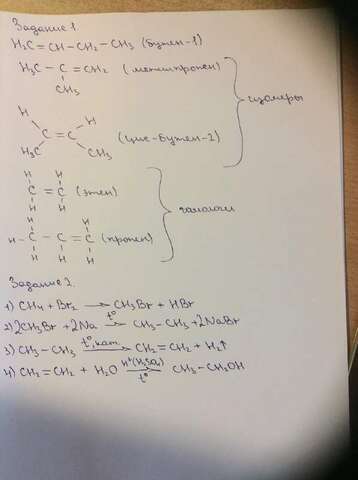 Задание 1.
H₂C=CH-CH₂-CH₃ (бутен-1)
H₃C-C=CH₂ (метилпропен)
CH₃
изомеры
H H
C=C (цис-бутен-2)
H₃C CH₃
H H
C=C (этен)
H H
гомологи
H H H
H-C-C=C (пропен)
H H H
Задание 2.
1) CH₄ + Br₂ → CH₃Br + HBr
2) 2CH₃Br + 2Na →t° CH₃-CH₃ + 2NaBr
3) CH₃-CH₃ →t°, кат. CH₂=CH₂ + H₂↑
4) CH₂=CH₂ + H₂O →H⁺(H₂SO₄) t° CH₃-CH₂OH